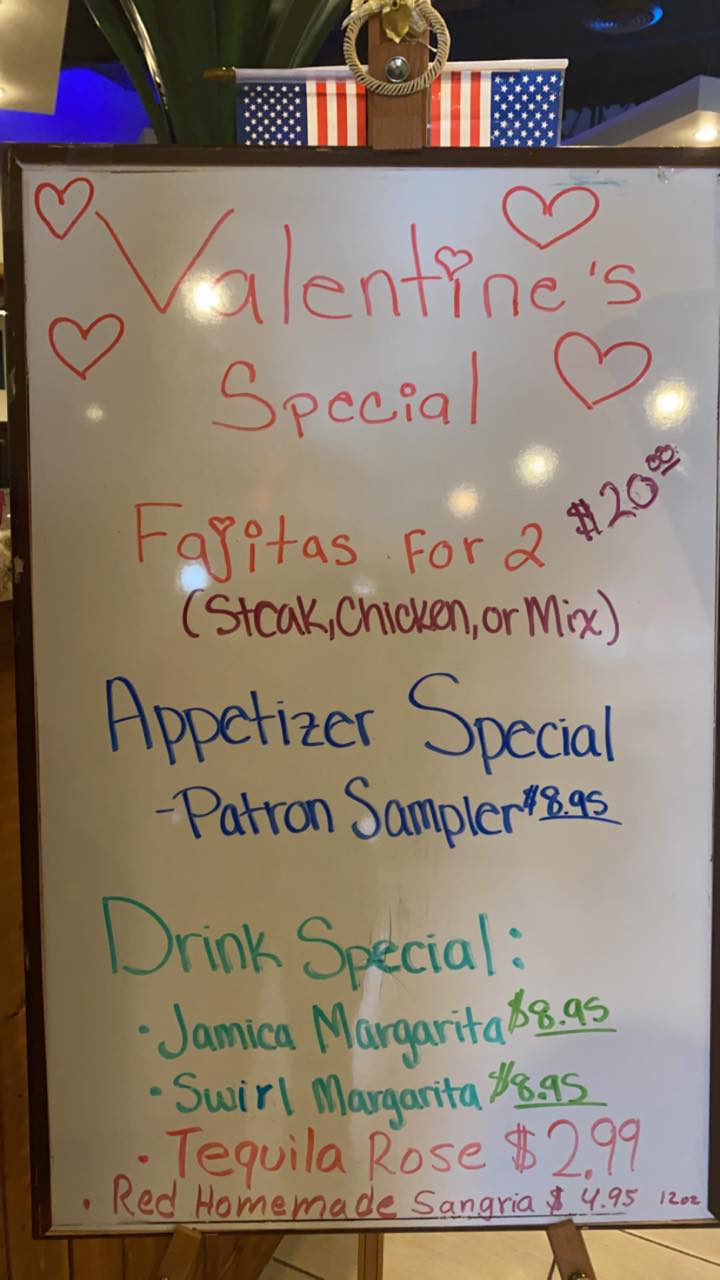 Valentine's
Special
Fajitas For 2 $20.00
(Steak, Chicken, or Mix)
Appetizer Special
-Patron Sampler $8.95
Drink Special:
• Jamica Margarita $8.95
• Swirl Margarita $8.95
• Tequila Rose $2.99
• Red Homemade Sangria $4.95 12oz